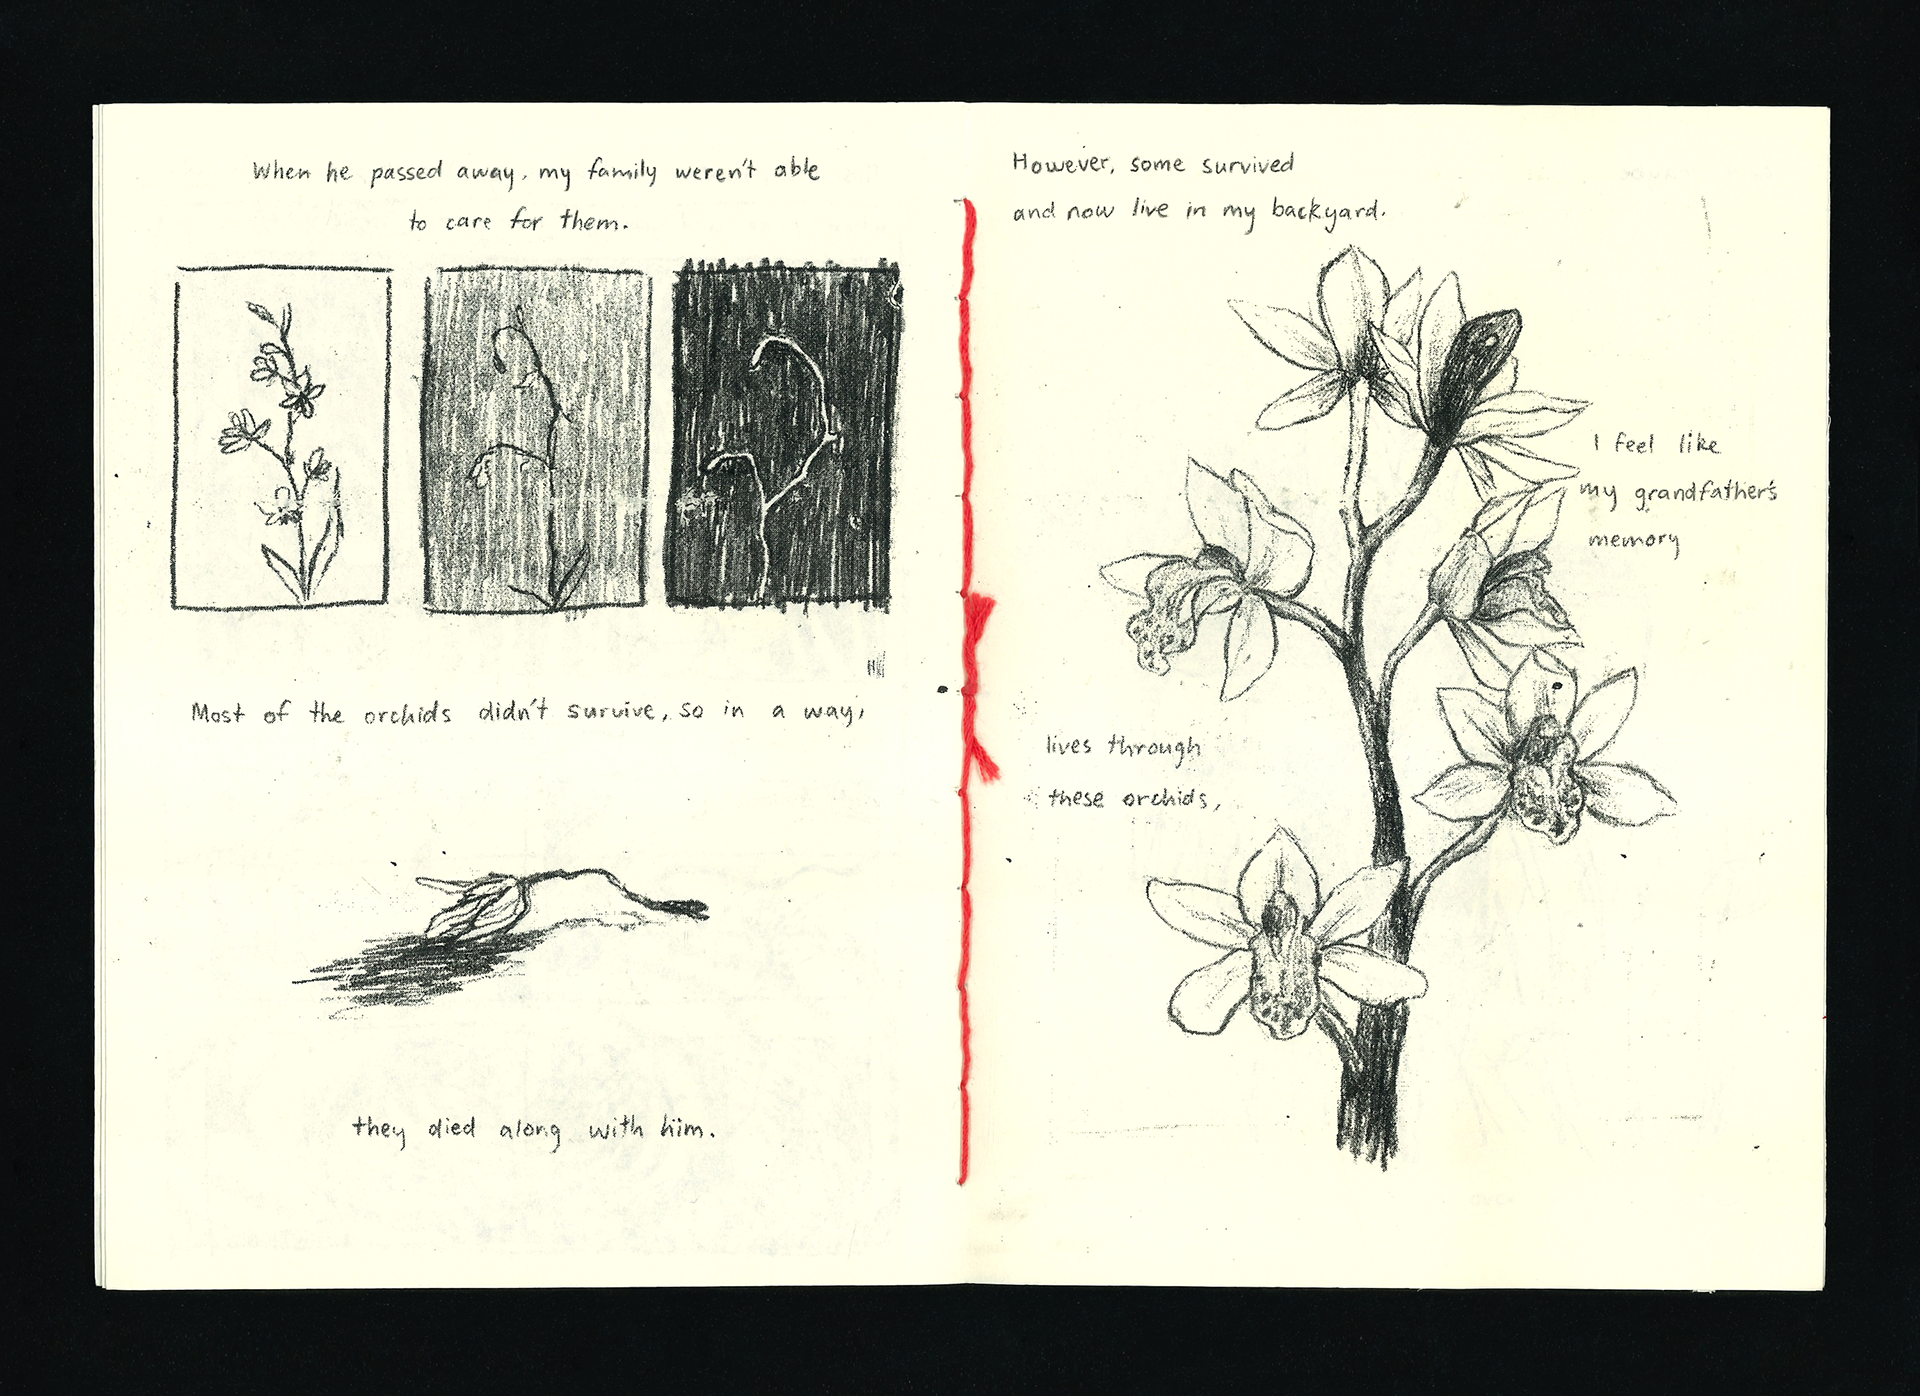 When he passed away, my family weren't able
to care for them.
Most of the orchids didn't survive, so in a way,
they died along with him.
However, some survived
and now live in my backyard.
I feel like
my grandfather's
memory
lives through
these orchids,